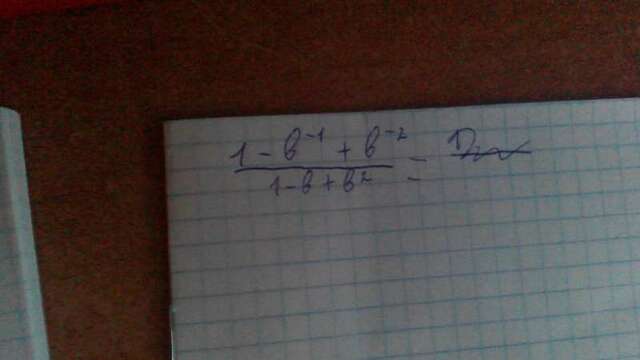 1 - b⁻¹ + b⁻² =
1 - b + b²